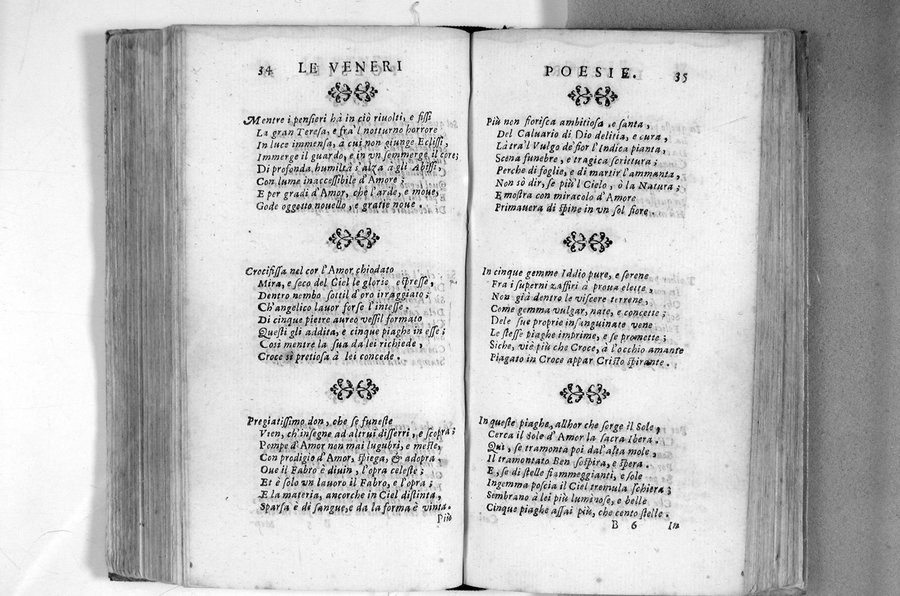 34 LE VENERI
Mentre i pensieri hà in ciò riuolti, e fissi
La gran Teresa, e frà l notturno horrore
In luce immensa, à cui non giunge Eclissi,
Immerge il guardo, e in vn semmerge il core;
Di profonda humiltà s'alza à gli Abissi,
Con lume inaccessibile d'Amore;
E per gradi d'Amor, che l'arde, e moue,
Gode oggetto nouello, e gratie noue.
Crocifissa nel cor l'Amor chiodato
Mira, e seco del Ciel le glorie espresse,
Dentro nembo sottil d'oro irraggiato;
Ch'angelico lauor forse l'intesse.
Di cinque pietre aureo vessil formato
Questi gli addita, e cinque piaghe in esse;
Così mentre la sua da lei richiede,
Croce sì pretiosa à lei concede.
Pregiatissimo don, che se funeste
Vien, ch'insegne ad altrui disserri, e scopra;
Pompe d'Amor non mai lugubri, e meste,
Con prodigio d'Amor, spiega, & adopra.
Oue il Fabro è diuin, l'opra celeste;
Et è solo vn lauoro il Fabro, e l'opra;
E la materia, ancorche in Ciel distinta,
Sparsa è di sangue, e da la forma è vinta.
Più
POESIE. 35
Più non fiorisca ambitiosa, e santa,
Del Caluario di Dio delitia, e cura,
Là trà l Vulgo de' fior l'Indica pianta,
Scena funebre, e tragica scrittura;
Perche di foglie, e di martir l'ammanta,
Non sò dir, se più l Cielo, ò la Natura;
E mostra con miracolo d'Amore
Primauera di spine in vn sol fiore.
In cinque gemme Iddio pure, e serene
Fra i superni zaffiri à proua elette,
Non già dentro le viscere terrene,
Come gemma vulgar, nate, e concette;
Dele sue proprie insanguinate vene
Le stesse piaghe imprime, e se promette;
Siche, viè più che Croce, à l'occhio amante
Piagato in Croce appar Cristo spirante.
In queste piaghe, allhor che sorge il Sole,
Cerca il Sole d'Amor la sacra Ibera.
Quì, se tramonta poi dal'alta mole,
Il tramontato Ben sospira, e spera.
E, se di stelle fiammeggianti, e sole
Ingemma poscia il Ciel tremula schiera;
Sembrano à lei più luminose, e belle
Cinque piaghe assai più, che cento stelle.
B 6 In